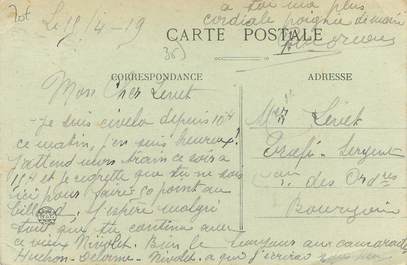 à toi ma plus
cordiale poignée de main
Le 15/4-19
CARTE POSTALE
CORRESPONDANCE
ADRESSE
Mon Cher Levet
Je suis depuis 10h
ce matin, j'en suis heureux!
J'attend mon train ce soir à
et je regrette que tu ne sois
ici pour faire 60 points au
billard. J'espère malgré
tout que tu continu avec
ce vieux Nivolet. Bien le bonjour aux camarades
Huchon-Delorme-Nivolet à qui j'écrirai
Levet
Sergent
des Ordres
Bourgoin